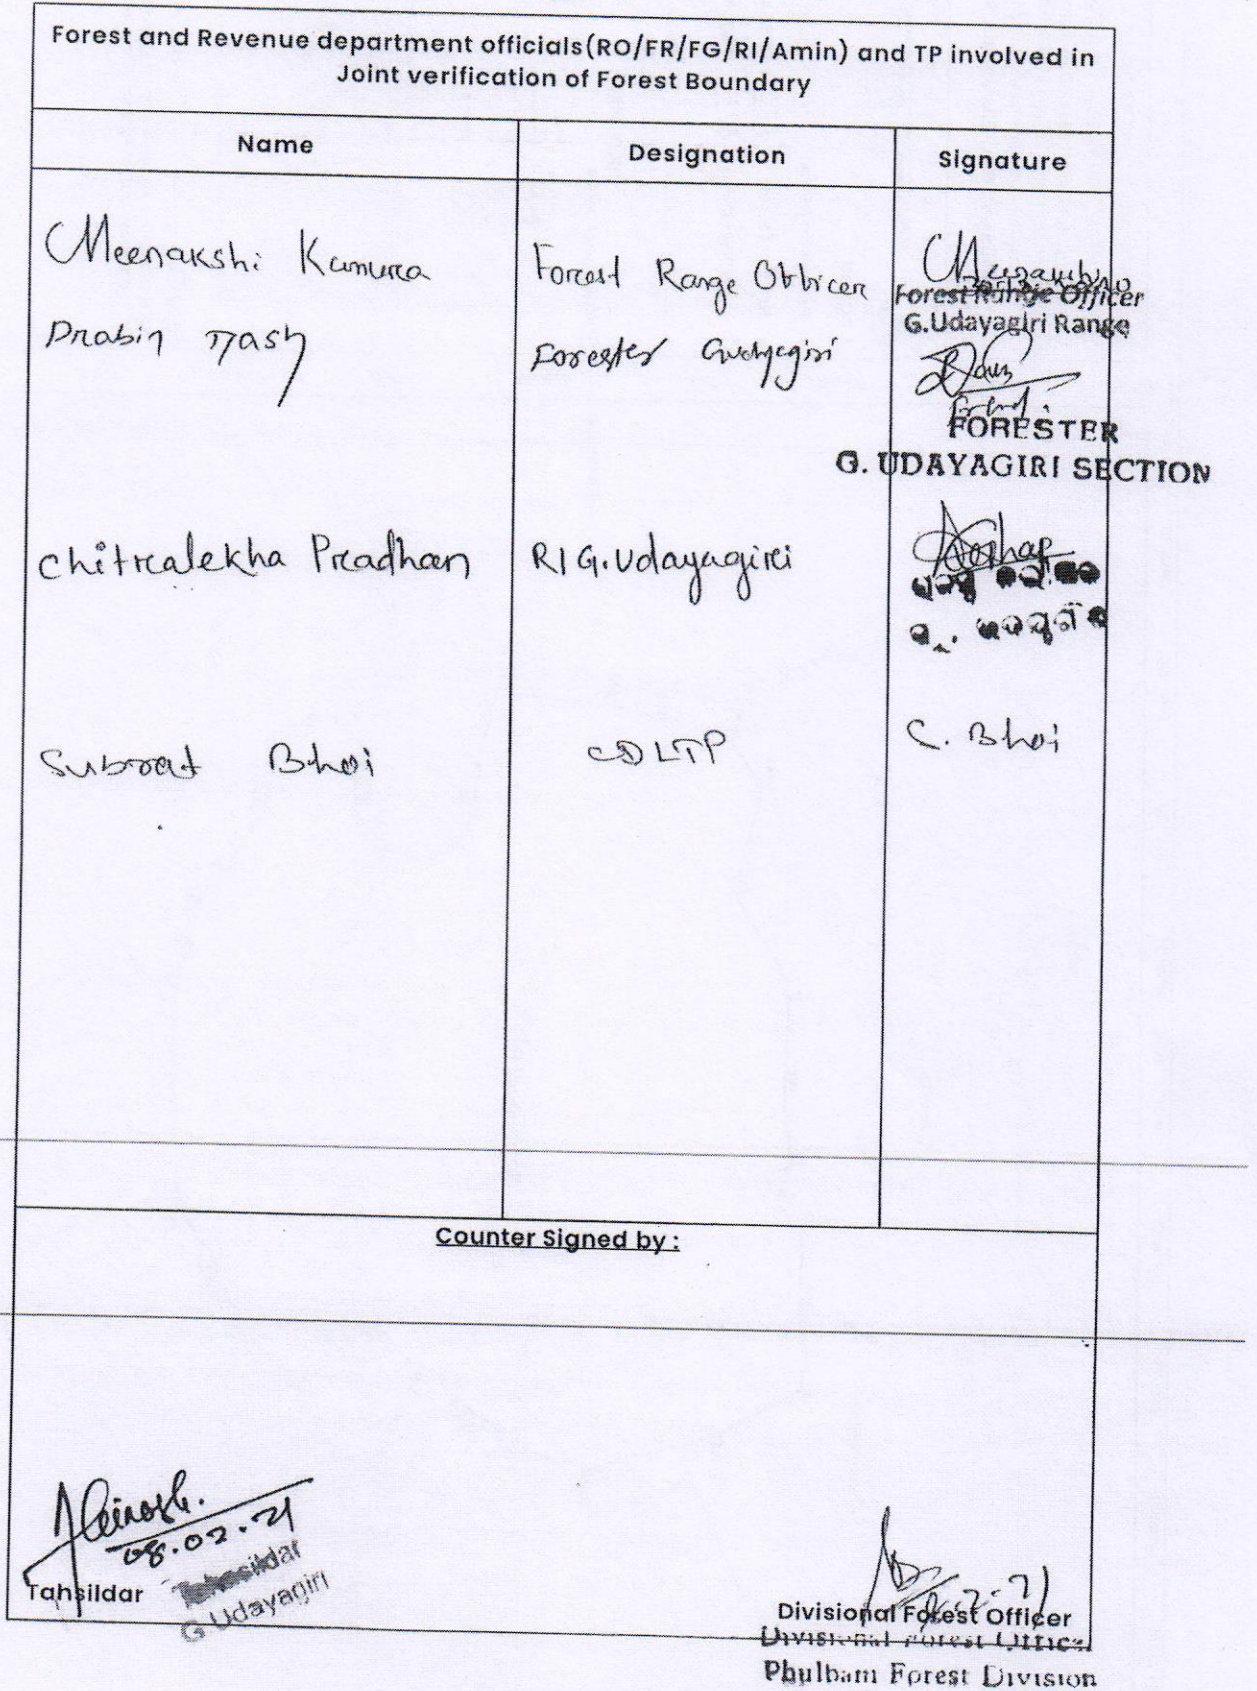 Forest and Revenue department officials(RO/FR/FG/RI/Amin) and TP involved in
Joint verification of Forest Boundary
Name Designation Signature
Meenakshi Kumura Forest Range Officer
Forest Range Officer
G.Udayagiri Range
Prabin Dash Forester Gudyagiri
FORESTER
G. UDAYAGIRI SECTION
Chitralekha Pradhan RI G.Udayagiri
Subrat Bhoi CDLTP C. Bhoi
Counter Signed by :
08.02.21
Tahsildar
Tahasildar
G.Udayagiri
Divisional Forest Officer
Divisional Forest Officer
Phulbani Forest Division